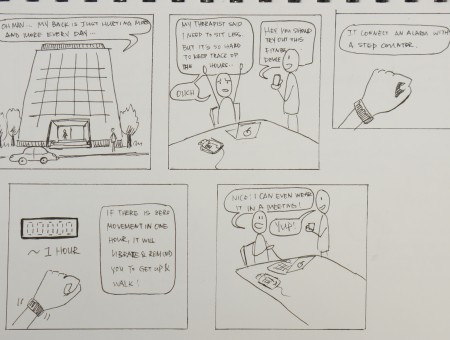 OH MAN... MY BACK IS JUST HURTING MORE
AND MORE EVERY DAY...
MY THERAPIST SAID
I NEED TO SIT LESS
BUT IT'S SO HARD
TO KEEP TRACK OF
THE HOURS..
OUCH
HEY YOU SHOULD
TRY OUT THIS
FITNESS
DEVICE
IT CONNECT AN ALARM WITH
A STEP COUNTER.
0000000
~ 1 HOUR
IF THERE IS ZERO
MOVEMENT IN ONE
HOUR, IT WILL
VIBRATE & REMIND
YOU TO GET UP &
WALK!
NICE! I CAN EVEN WEAR
IT IN A MEETING!
YUP!